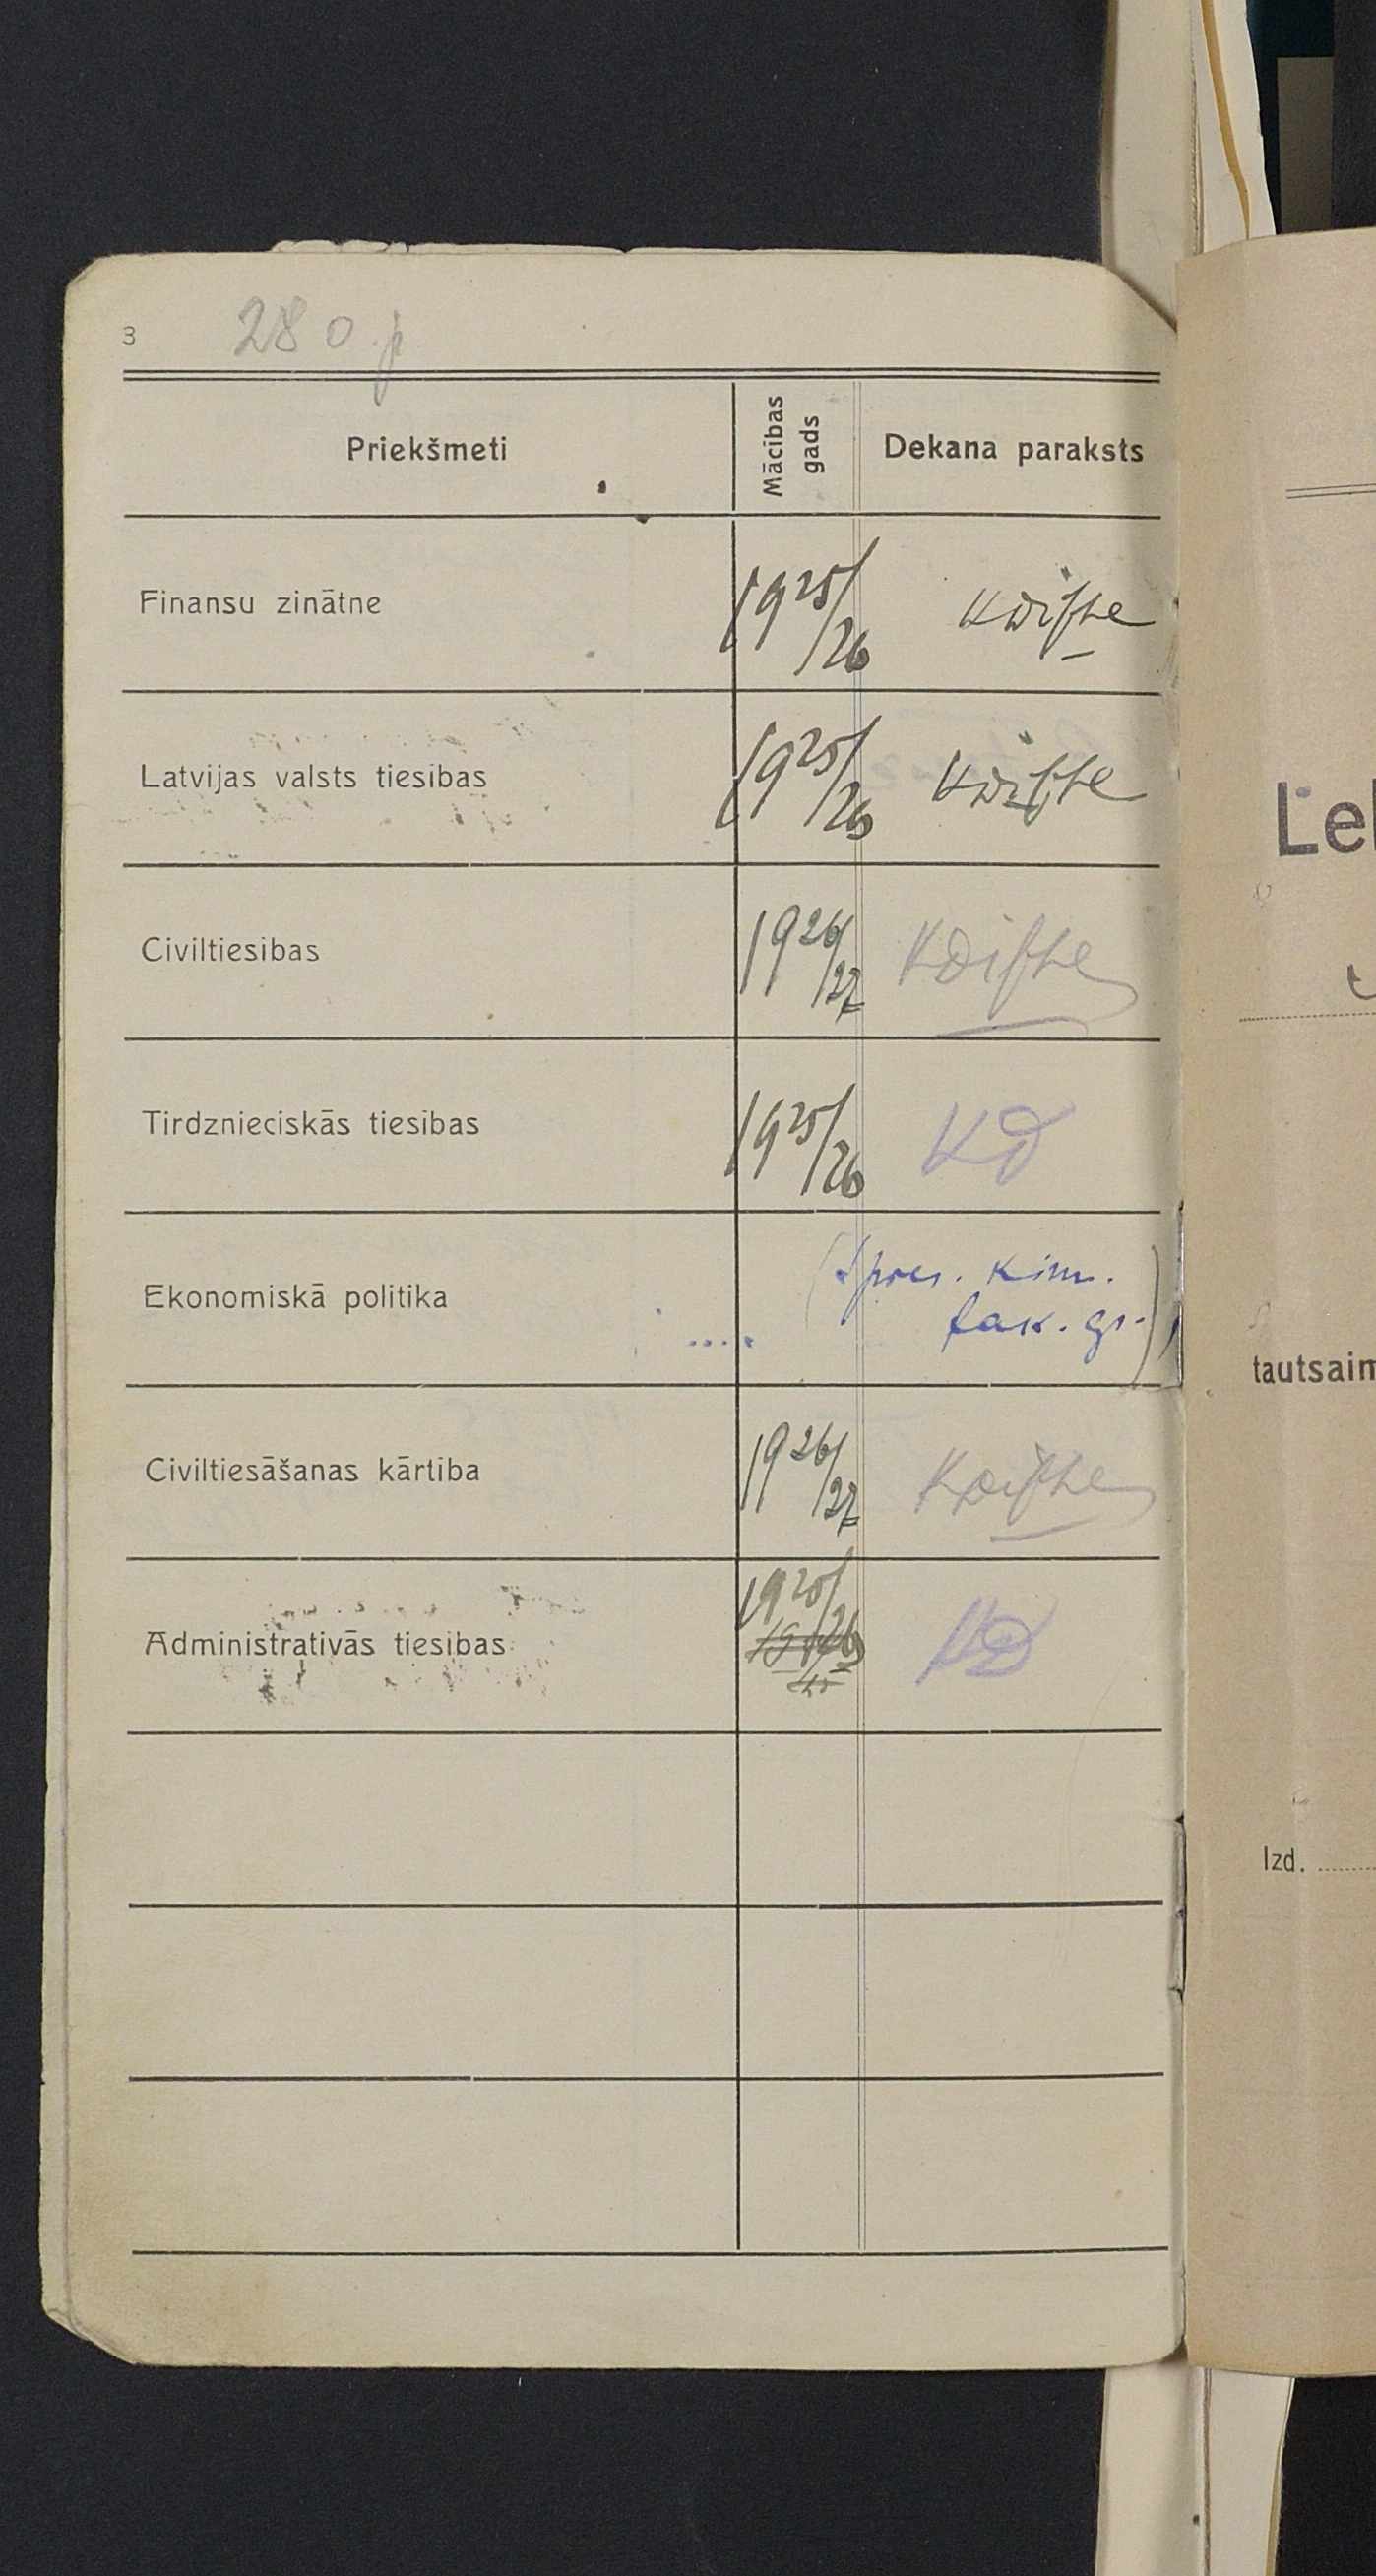 3 280 p
Priekšmeti Mācības gads Dekana paraksts
Finansu zinātne 1925/26
Latvijas valsts tiesības 1925/26
Civiltiesības 1926/27
Tirdznieciskās tiesības 1925/26 KD
Ekonomiskā politika
Civiltiesāšanas kārtība 1926/27
Administratīvās tiesības 1925/26 KD
Lek
tautsaim
Izd.